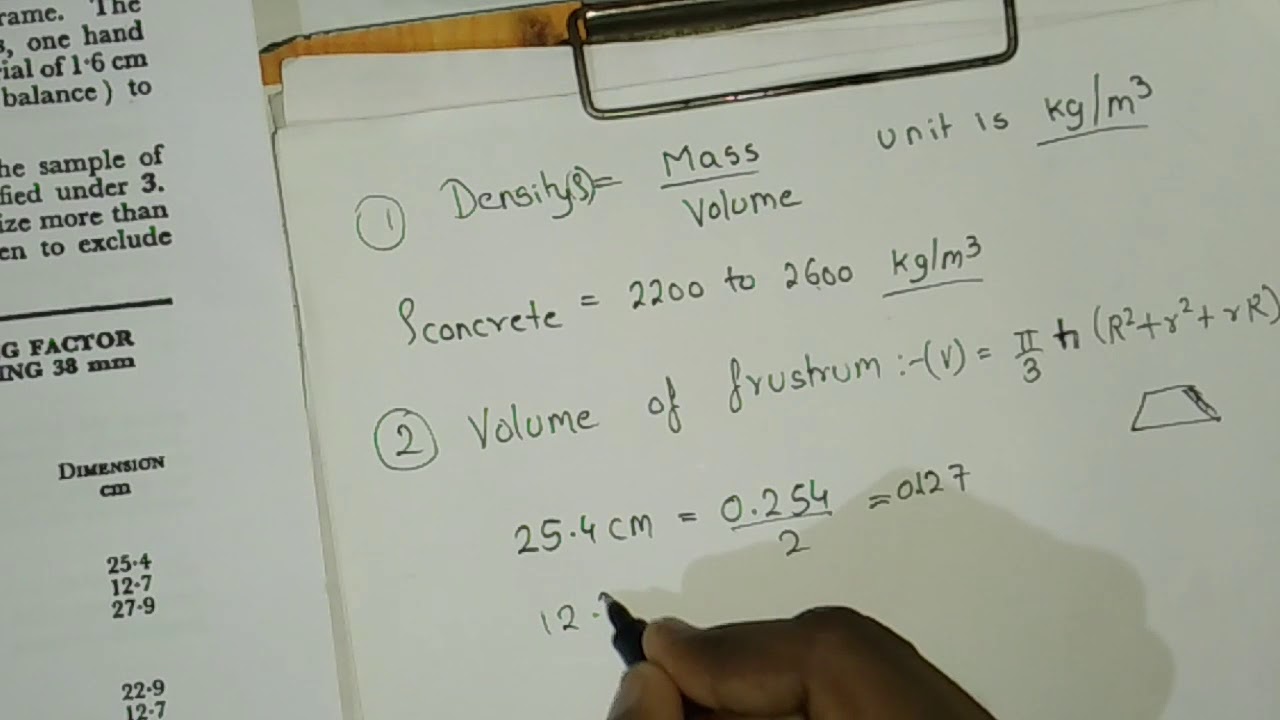 rame. The
s, one hand
ial of 1·6 cm
balance) to
he sample of
fied under 3.
ize more than
en to exclude
G FACTOR
ING 38 mm
DIMENSION
cm
25·4
12·7
27·9
22·9
12·7
① Density(ρ) = Mass / Volume unit is kg/m³
ρconcrete = 2200 to 2600 kg/m³
② Volume of frustrum :- (V) = π/3 h (R²+r²+rR)
25.4 cm = 0.254 / 2 = 0.127
12.